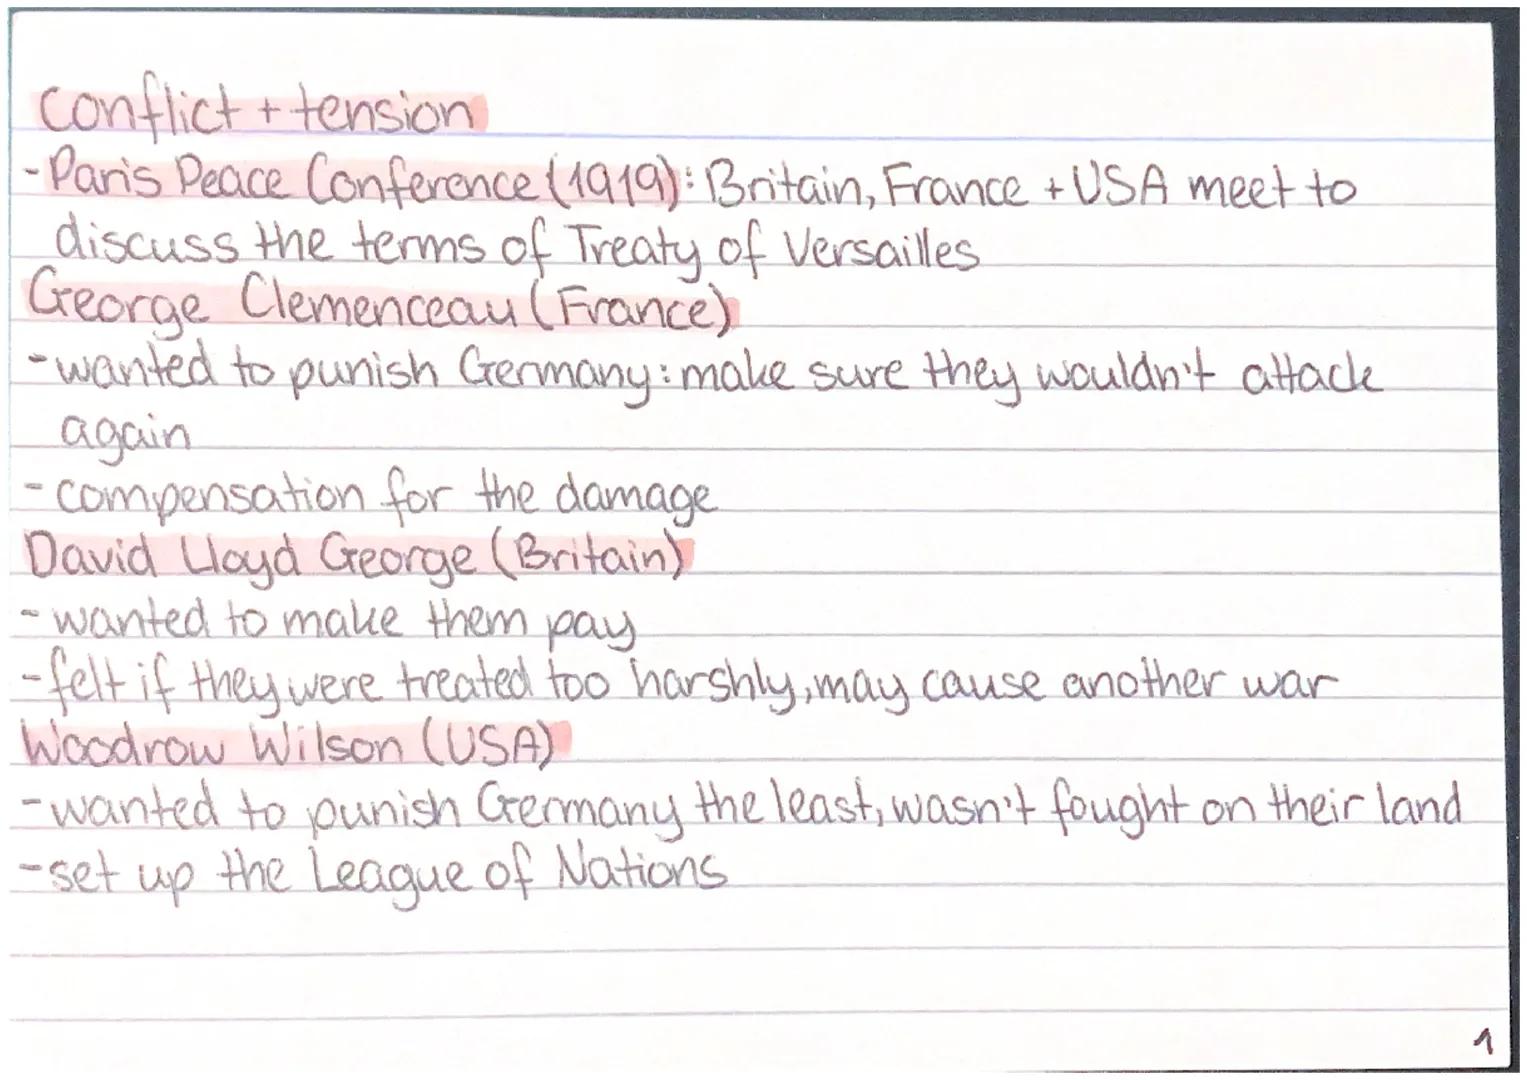 conflict + tension
-Paris Peace Conference (1919): Britain, France + USA meet to
discuss the terms of Treaty of Versailles
George Clemenceau (France)
-wanted to punish Germany: make sure they wouldn't attack
again
-compensation for the damage
David Lloyd George (Britain)
-wanted to make them pay
-felt if they were treated too harshly, may cause another war
Woodrow Wilson (USA)
-wanted to punish Germany the least, wasn't fought on their land
-set up the League of Nations
1